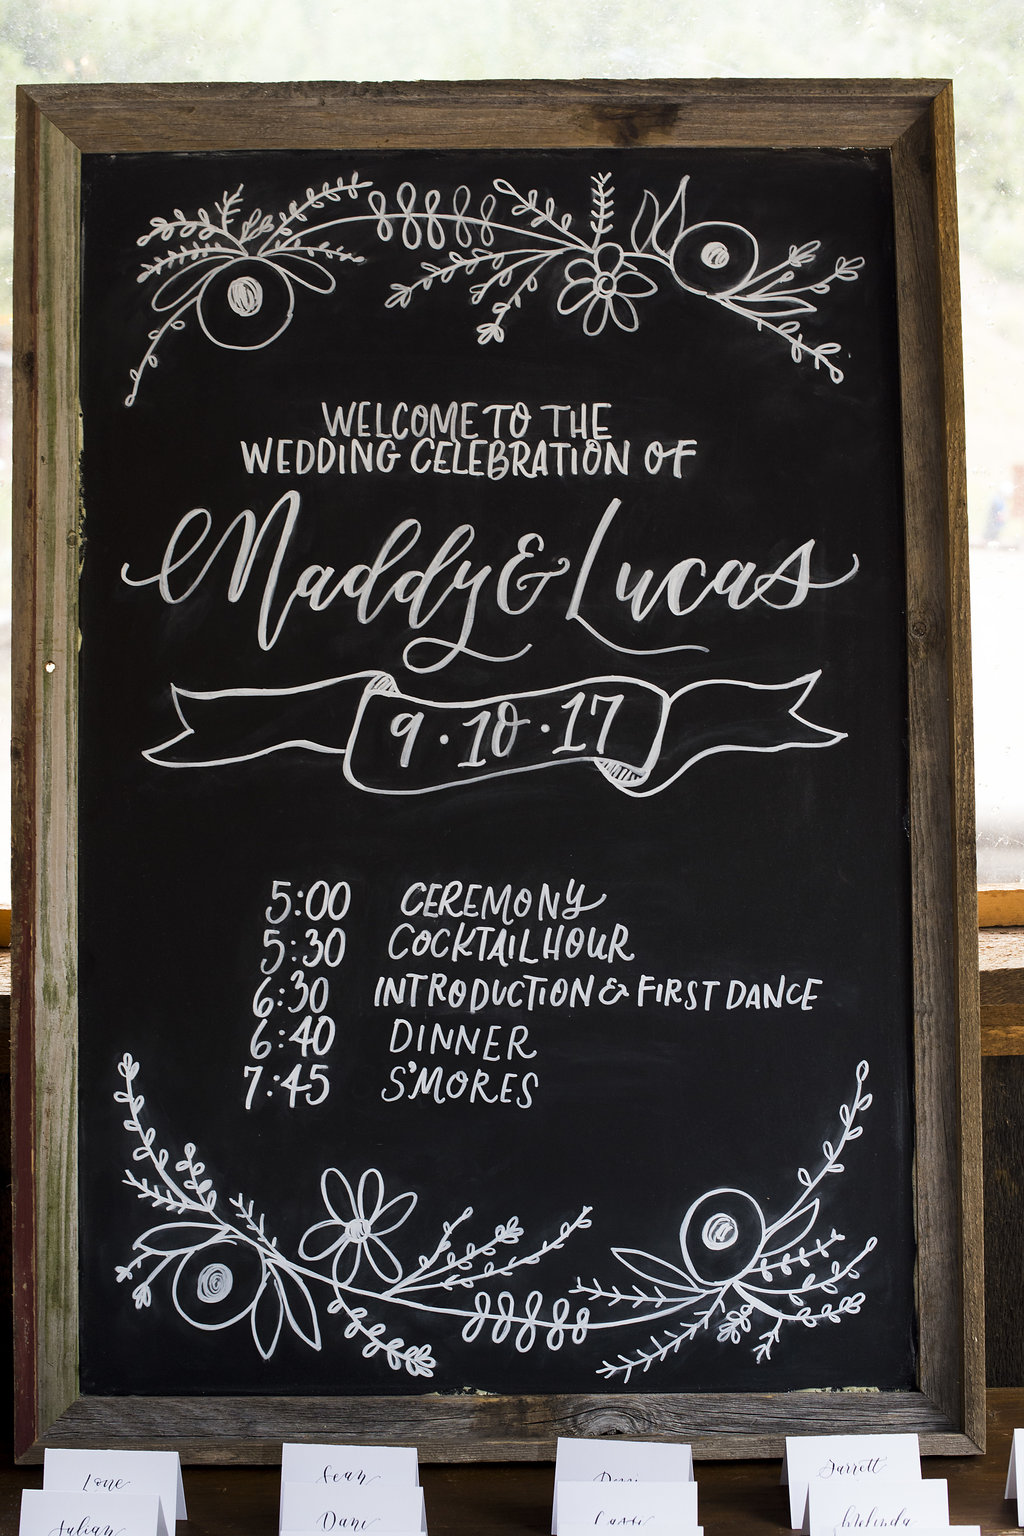 WELCOME TO THE
WEDDING CELEBRATION OF
Maddy & Lucas
9 · 10 · 17
5:00 CEREMONY
5:30 COCKTAIL HOUR
6:30 INTRODUCTION & FIRST DANCE
6:40 DINNER
7:45 S'MORES
Sean
Jarrett
Julian
Dani